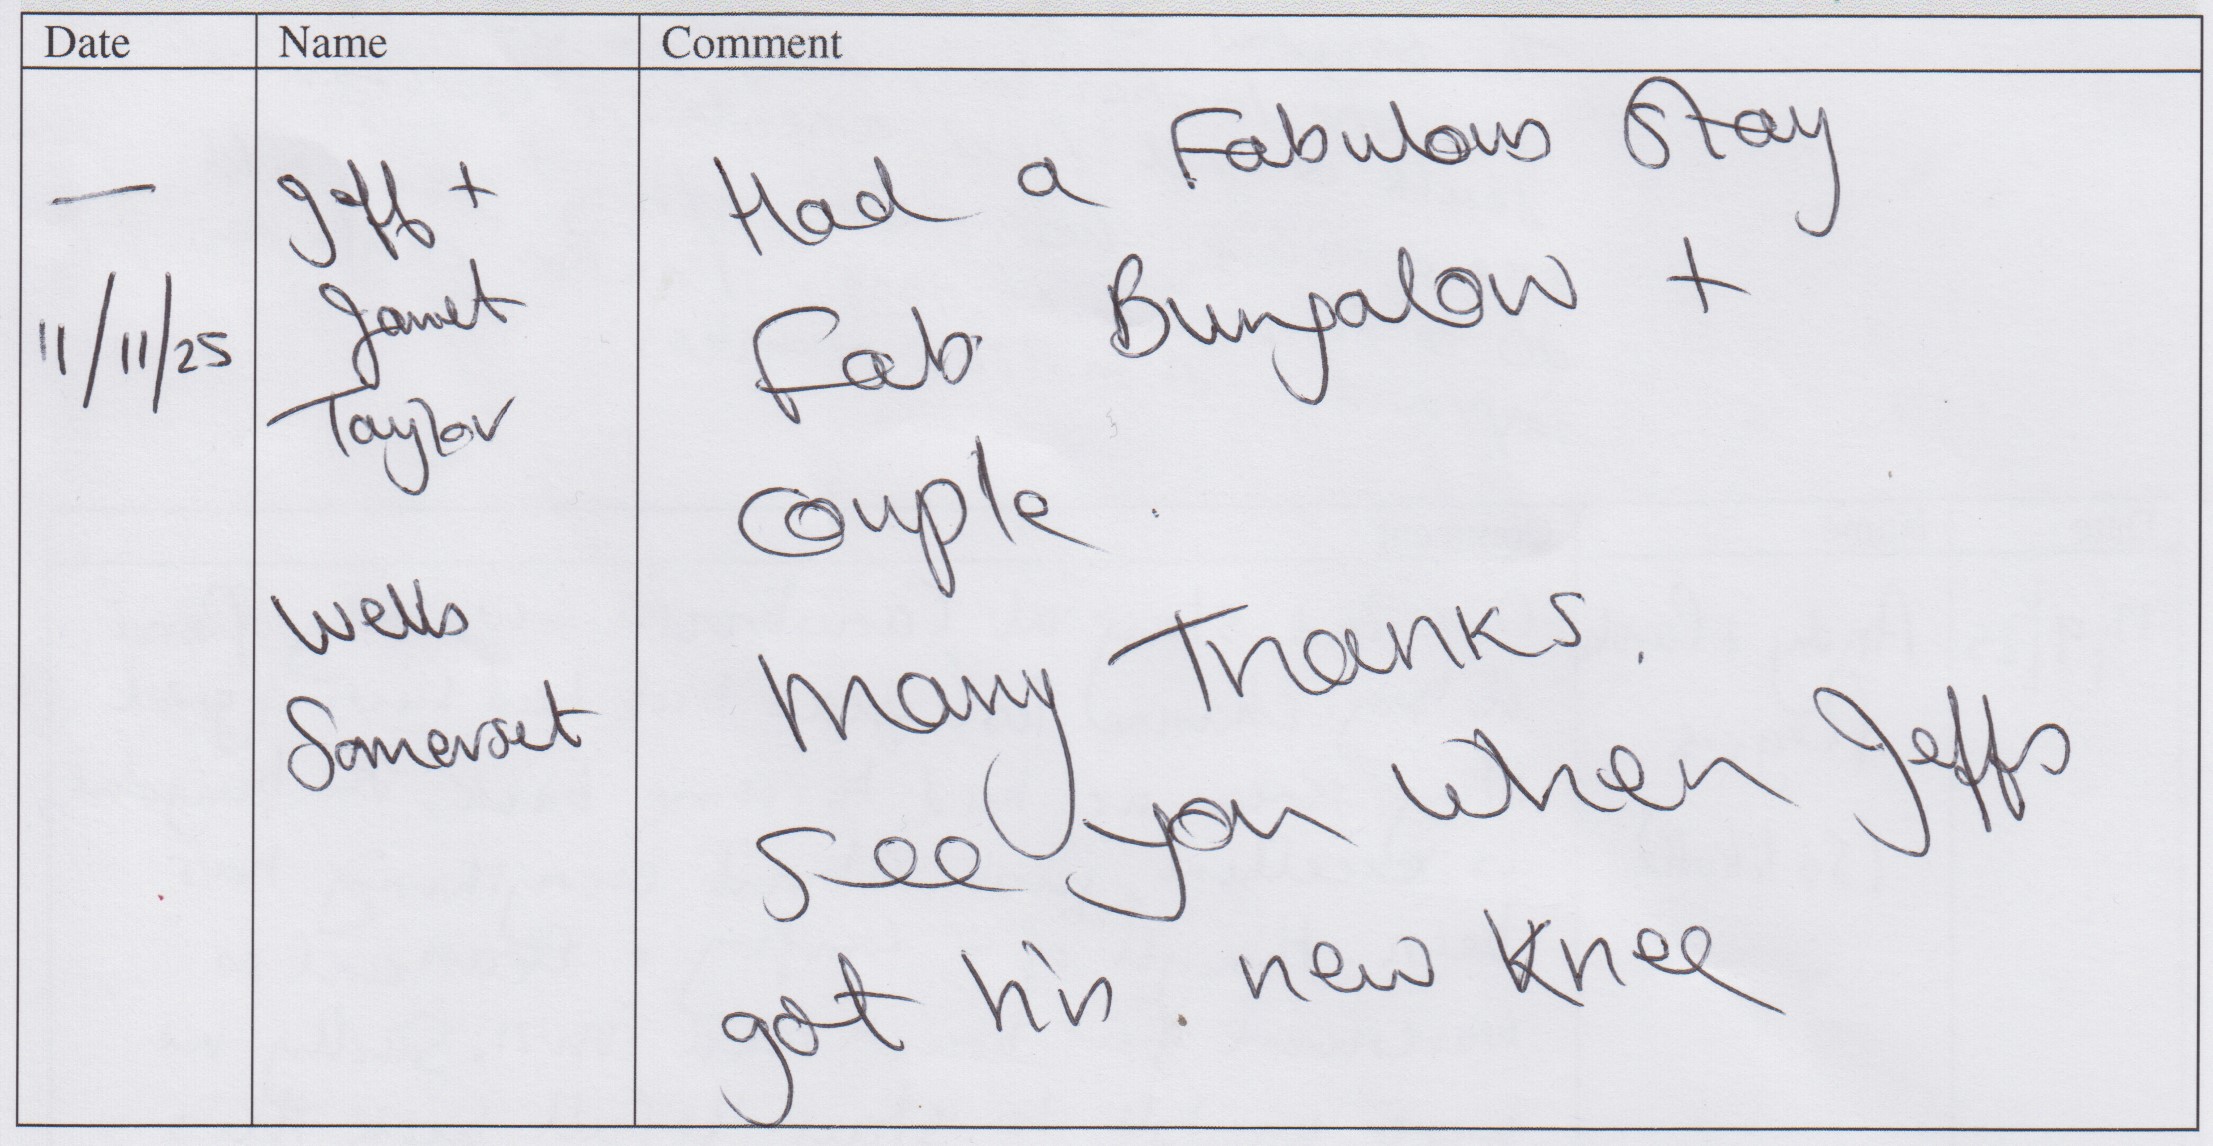 Date Name Comment
—
11/11/25
Jeff +
Janet
Taylor
Wells
Somerset
Had a Fabulous Stay
Fab Bungalow +
Couple.
Many Thanks.
See you when Jeffs
got his new Knee